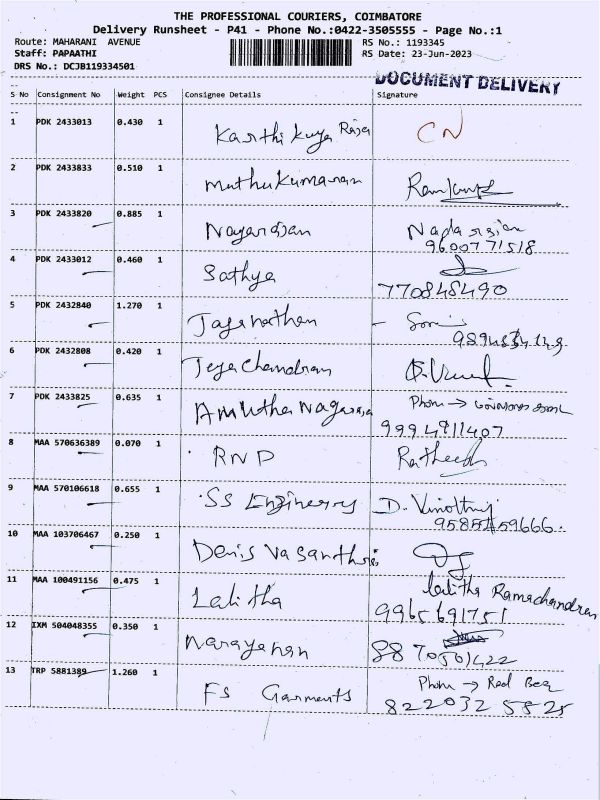 THE PROFESSIONAL COURIERS, COIMBATORE
Delivery Runsheet - P41 - Phone No.:0422-3505555 - Page No.:1
Route: MAHARANI AVENUE RS No.: 1193345
Staff: PAPAATHI RS Date: 23-Jun-2023
DRS No.: DCJB119334501
DOCUMENT DELIVERY
S No Consignment No Weight PCS Consignee Details Signature
1 PDK 2433013 0.430 1 Karthikeya Raja CN
2 PDK 2433833 0.510 1 Muthukumaran
3 PDK 2433820 0.885 1 Nagarajan Nagarajan
9600771518
4 PDK 2433012 0.460 1 Sathya
770848490
5 PDK 2432840 1.270 1 Jaganathan
6 PDK 2432808 0.420 1 Jeyachandran
7 PDK 2433825 0.635 1 Amutha Nagaraja Phon →
9994911407
8 MAA 570636389 0.070 1 RND
9 MAA 570106618 0.655 1 SS Enginerry D.
10 MAA 103706467 0.250 1 Denis
11 MAA 100491156 0.475 1 Lalitha Lalitha Ramachandran
9965691751
12 IXM 504048355 0.350 1 Narayanan
8870501422
13 TRP 5881389 1.260 1 FS Garments Phon → Red Bag
822032 5525